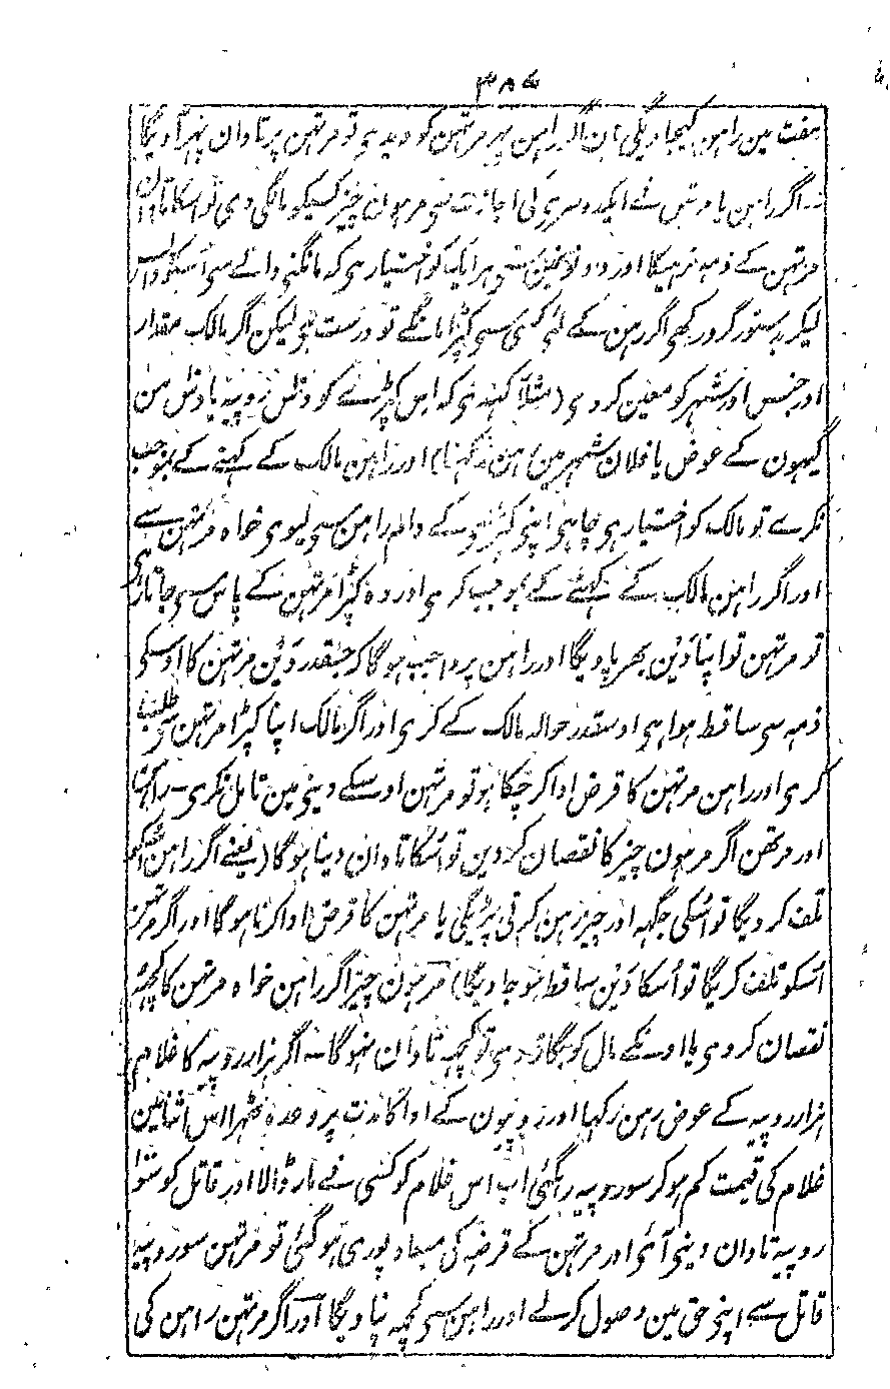 ۳۸۷
مفت مین راہن کیجاویگی ہان اگر راہن پہر مرتہن کو دیدے تو مرتہن پر تاوان پہر آویگا
۔ اگر راہن یا مرتہن نے ایکدوسری کی اجازت سی مرہون چیز کسیکو مانگی دی تو اسکا تاوان
مرتہن کے ذمہ نرہیگا اور دونونمین سی ہر ایک کو اختیار ہی کہ مانگنی والے سی اسکو واپس
لیکر بدستور گرو رکھی اگر رہن کے لئی کسی سی کپڑا مانگے تو درست ہی لیکن اگر مالک مقدار
اور جنس اور شہر کو معین کر دی (مثلاً کہدی کہ اس کپڑے کو دس روپیہ یا دس من
گیہون کے عوض یا فلان شہر مین رہن رکہنا) اور راہن مالک کے کہنے کے بموجب
نکرے تو مالک کو اختیار ہی چاہی اپنی کپڑیکے دام راہن سی لیوی خواہ مرتہن سے
اور اگر راہن مالک کے کہنے کے بموجب کری اور وہ کپڑا مرتہن کے پاس سی جاتا رہی
تو مرتہن تو اپنا دَین بھر پاویگا اور راہن پر واجب ہوگا کہ جسقدر دَین مرتہن کا اوسکی
ذمہ سی ساقط ہوا ہی اوسقدر حوالہ مالک کے کری اور اگر مالک اپنا کپڑا مرتہن سی طلب
کری اور راہن مرتہن کا قرض ادا کر چکا ہو تو مرتہن اوسکے دینی مین تامل نکری ۔ راہن
اور مرتھن اگر مرہون چیز کا نقصان کردین تو اُسکا تاوان دینا ہوگا (یعنے اگر راہن اسکو
تلف کر دیگا تو اُسکی جگہہ اور چیز رہن کرنی پڑیگی یا مرتہن کا قرض ادا کرنا ہوگا اور اگر مرتہن
اُسکو تلف کریگا تو اُسکا دَین ساقط ہو جاویگا) مرہون چیز اگر راہن خواہ مرتہن کا کچہہ
نقصان کر دی یا اونکے مال کو بگاڑ دی تو کچہہ تاوان نہوگا ۔ اگر ہزار روپیہ کا غلام
ہزار روپیہ کے عوض رہن رکہا اور روپیون کے ادا کا مدت پر وعدہ ٹہرا اس اثنا مین
غلام کی قیمت کم ہوکر سو روپیہ رہگئی اب اس غلام کو کسی نے مار ڈالا اور قاتل کو سَو
روپیہ تاوان دینی آئی اور مرتہن کے قرضہ کی میعاد پوری ہو گئی تو مرتہن سو روپیہ
قاتل سے اپنی حق مین وصول کرلے اور راہن سی کچہہ نپاویگا اور اگر مرتہن راہن کی